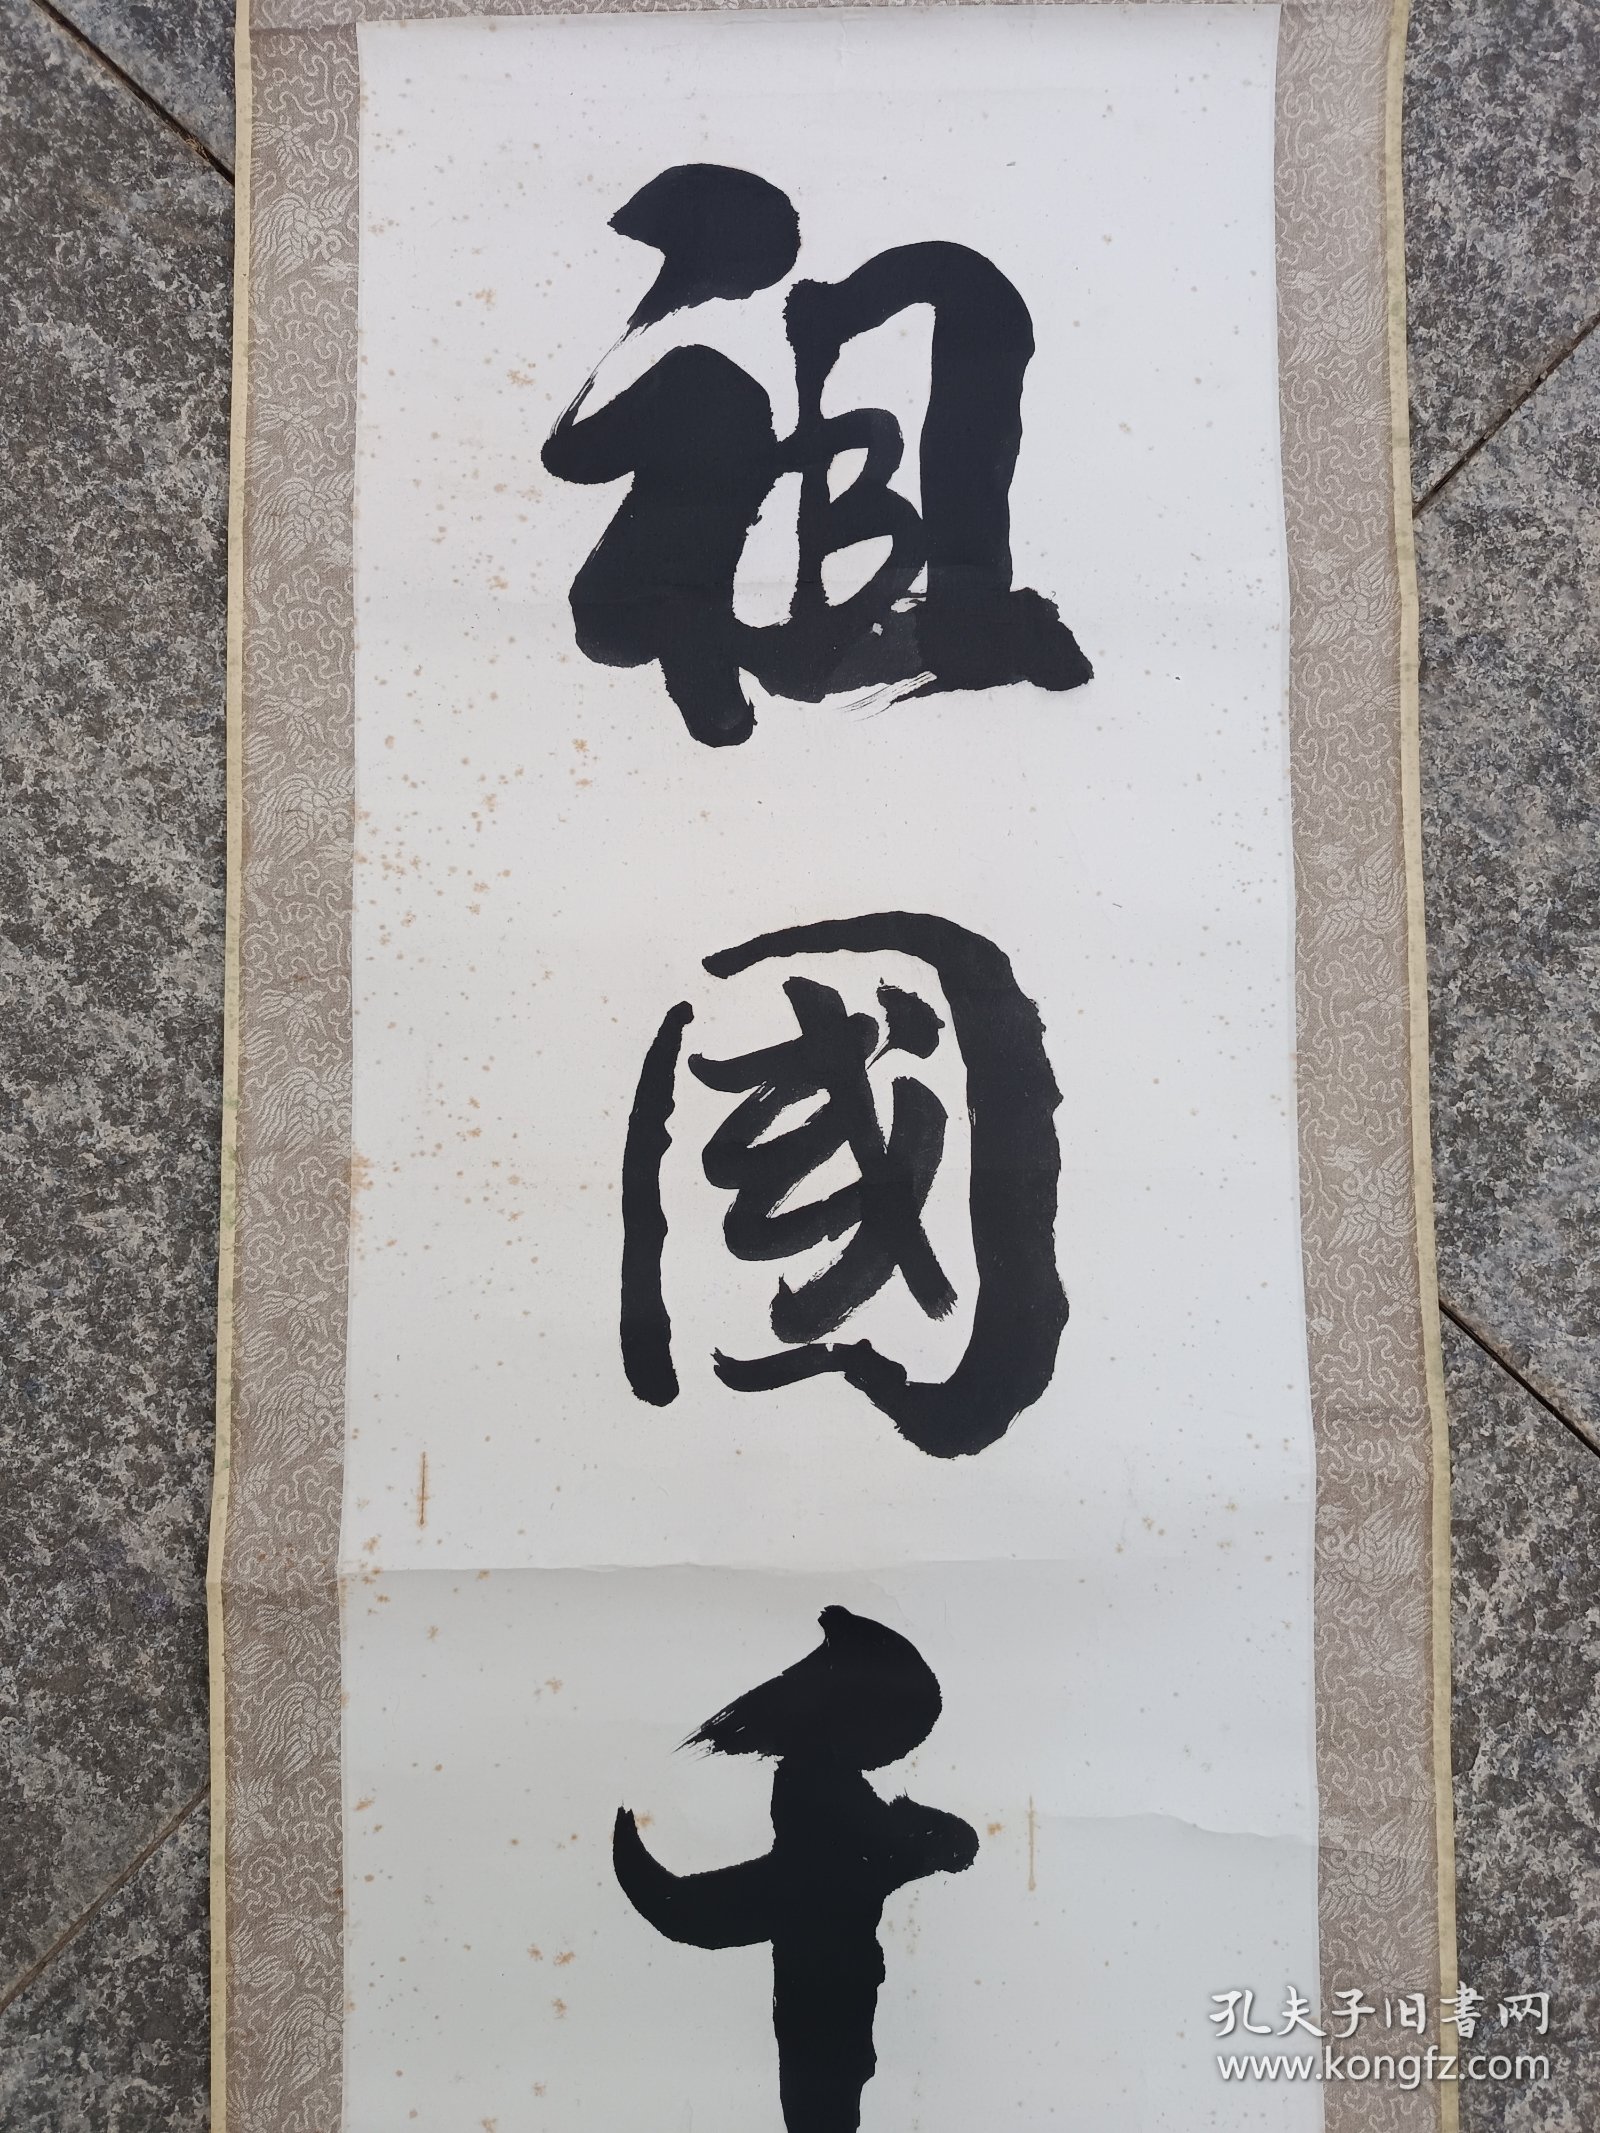 祖國千
孔夫子旧書网
www.kongfz.com